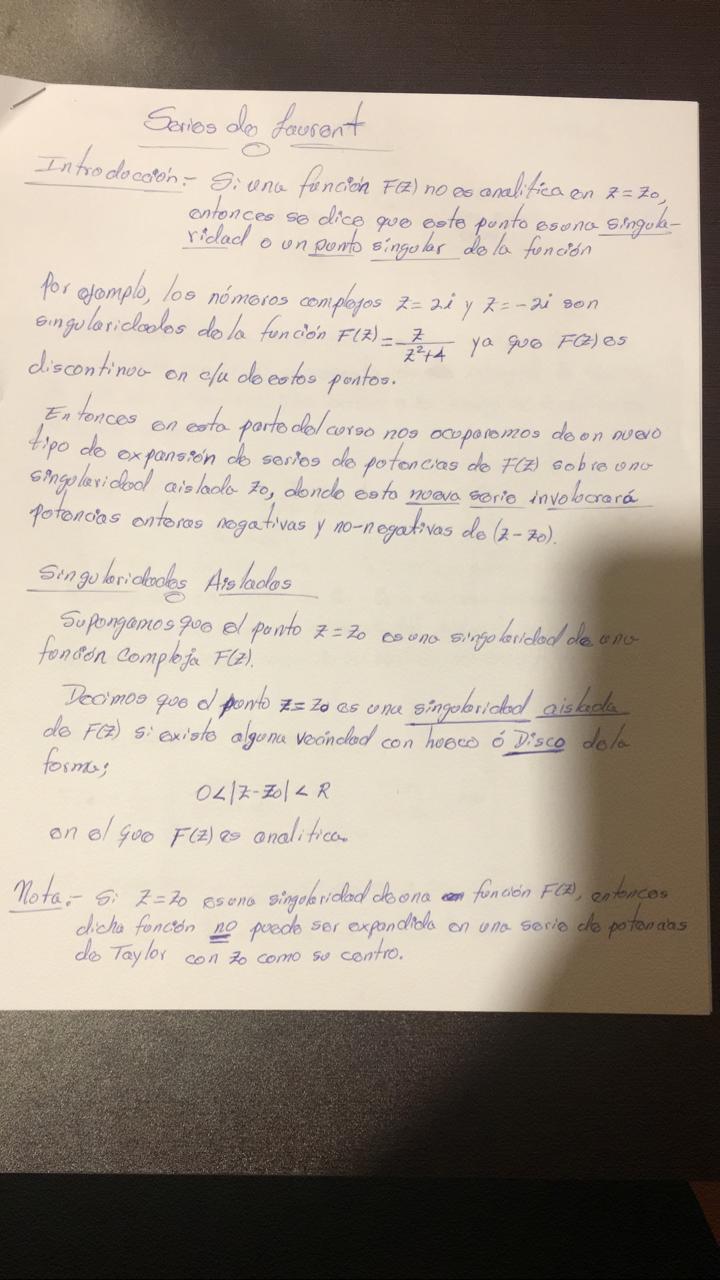 Series de Laurent
Introducción:- Si una función F(z) no es analitica en z=z₀,
entonces se dice que este punto es una singula-
ridad o un punto singular de la función
Por ejemplo, los números complejos z=2i y z=-2i son
singularidades de la función F(z)=z/(z²+4) ya que F(z) es
discontinua en c/u de estos puntos.
Entonces en esta parte del curso nos ocuparemos de un nuevo
tipo de expansión de series de potencias de F(z) sobre una
singularidad aislada z₀, donde esta nueva serie involucrará
potencias enteras negativas y no-negativas de (z-z₀).
Singularidades Aisladas
Supongamos que el punto z=z₀ es una singularidad de una
función compleja F(z).
Decimos que el punto z=z₀ es una singularidad aislada
de F(z) si existe alguna vecindad con hueco ó Disco de la
forma;
0<|z-z₀|<R
en el que F(z) es analitica.
Nota:- Si z=z₀ es una singularidad de una función F(z), entonces
dicha función no puede ser expandida en una serie de potencias
de Taylor con z₀ como su centro.